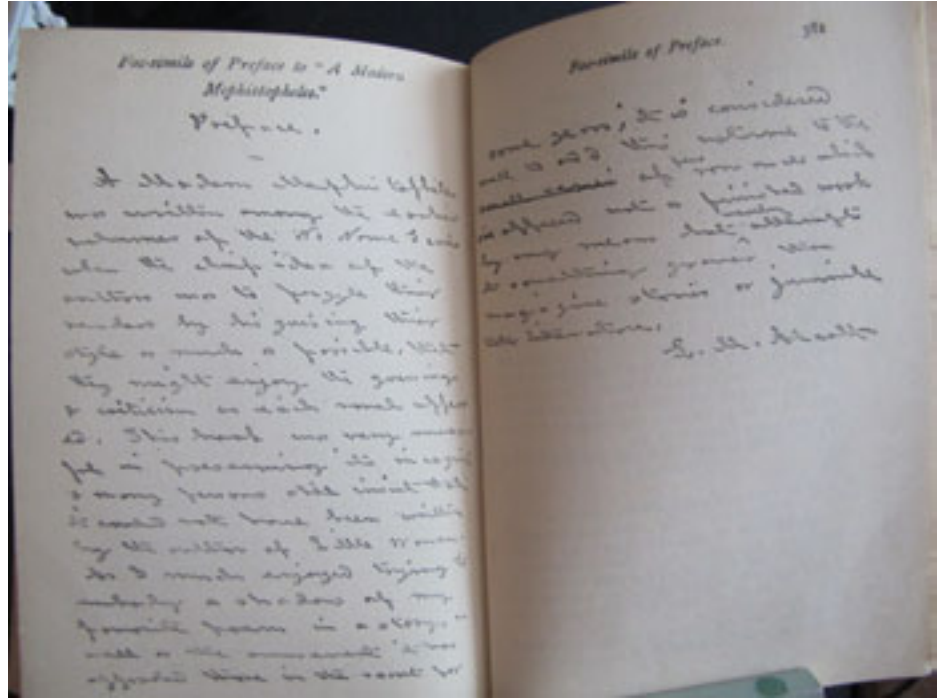 Fac-simile of Preface to "A Modern
Mephistopheles."
Preface.
A Modern Mephistopheles
was written among the earlier
volumes of the No Name Series
when the chief idea of the
authors was to puzzle their
readers by disguising their
style as much as possible, that
they might enjoy the guessing
& criticism as each novel appear
ed. This book was very success
ful in preserving its incognito
& many persons still insist that
it could not have been written
by the author of Little Women.
As I much enjoyed trying to
embody a shadow of my
favorite poem in a story, as
well as the amusement it has
afforded those in the secret for
Fac-simile of Preface.
381
some years, it is considered
well to add this volume to the
of romances which
are offered not as finished work
by any means but merely attempts
at something graver than
magazine stories or juvenile
literature.
L. M. Alcott